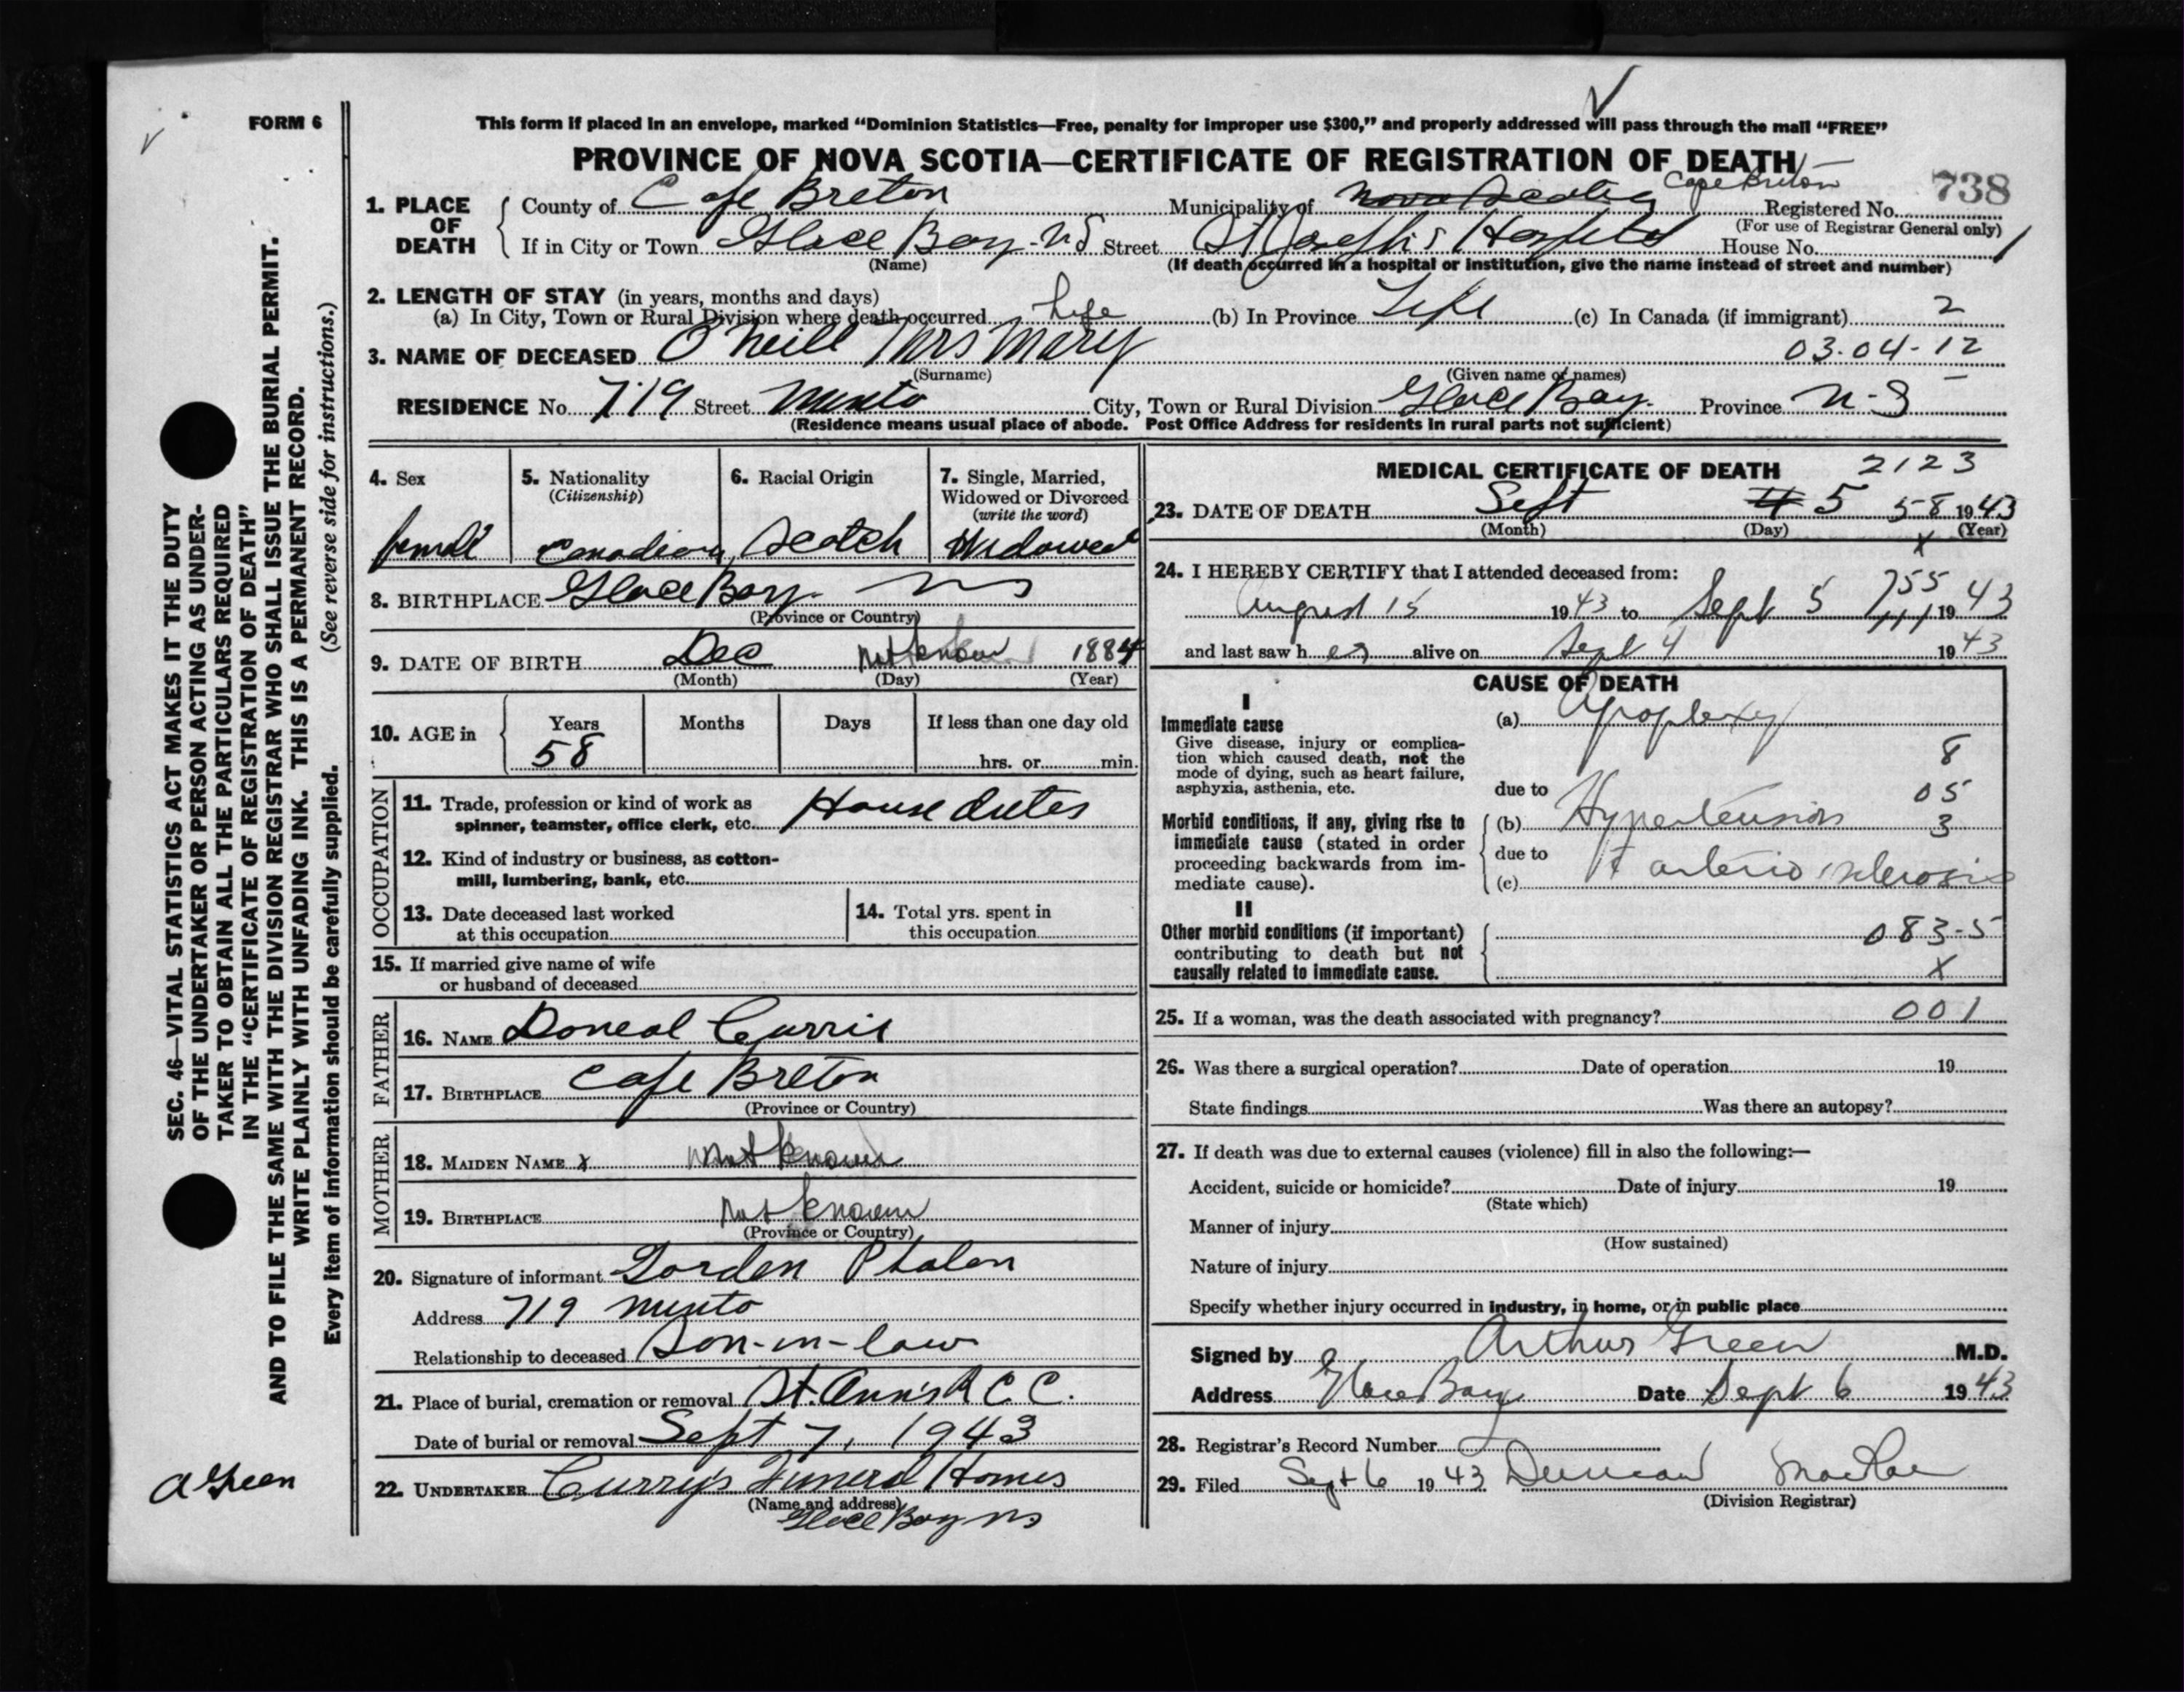 FORM 6
This form if placed in an envelope, marked "Dominion Statistics—Free, penalty for improper use $300," and properly addressed will pass through the mail "FREE"
PROVINCE OF NOVA SCOTIA—CERTIFICATE OF REGISTRATION OF DEATH
738
1. PLACE OF DEATH
County of Cape Breton Municipality of Nova Scotia Cape Breton Registered No.
(For use of Registrar General only)
If in City or Town Glace Bay - N S Street St Joseph's Hospital House No.
(Name) (If death occurred in a hospital or institution, give the name instead of street and number)
2. LENGTH OF STAY (in years, months and days)
(a) In City, Town or Rural Division where death occurred Life (b) In Province Life (c) In Canada (if immigrant) 2
3. NAME OF DECEASED O'Neill Mrs Mary 03-04-12
(Surname) (Given name or names)
RESIDENCE No. 719 Street Minto City, Town or Rural Division Glace Bay. Province N-S
(Residence means usual place of abode. Post Office Address for residents in rural parts not sufficient)
4. Sex
female
5. Nationality
(Citizenship)
Canadian
6. Racial Origin
Scotch
7. Single, Married,
Widowed or Divorced
(write the word)
Widowed
8. BIRTHPLACE Glace Bay NS
(Province or Country)
9. DATE OF BIRTH Dec not known 1884
(Month) (Day) (Year)
10. AGE in
Years Months Days If less than one day old
58 hrs. or min.
OCCUPATION
11. Trade, profession or kind of work as
spinner, teamster, office clerk, etc. House duties
12. Kind of industry or business, as cotton-
mill, lumbering, bank, etc.
13. Date deceased last worked
at this occupation
14. Total yrs. spent in
this occupation
15. If married give name of wife
or husband of deceased
FATHER
16. NAME Doneal Currie
17. BIRTHPLACE Cape Breton
(Province or Country)
MOTHER
18. MAIDEN NAME x not known
19. BIRTHPLACE not known
(Province or Country)
20. Signature of informant Gorden Phalen
Address 719 Minto
Relationship to deceased Son-in-law
21. Place of burial, cremation or removal St. Ann's R C C.
Date of burial or removal Sept 7, 1943
22. UNDERTAKER Curry's Funeral Homes
(Name and address)
Glace Bay NS
MEDICAL CERTIFICATE OF DEATH 2123
23. DATE OF DEATH Sept 4 5 58 1943
(Month) (Day) (Year)
x
24. I HEREBY CERTIFY that I attended deceased from:
August 15 1943 to Sept 5 755 1943
and last saw her alive on Sept 4 1943
CAUSE OF DEATH
I
Immediate cause
Give disease, injury or complica-
tion which caused death, not the
mode of dying, such as heart failure,
asphyxia, asthenia, etc.
(a) Apoplexy
8
due to
05
Morbid conditions, if any, giving rise to
immediate cause (stated in order
proceeding backwards from im-
mediate cause).
(b) Hypertension 3
due to
(c) & arterio sclerosis
II
Other morbid conditions (if important)
contributing to death but not
causally related to immediate cause.
083-5
x
25. If a woman, was the death associated with pregnancy? 001
26. Was there a surgical operation? Date of operation 19
State findings Was there an autopsy?
27. If death was due to external causes (violence) fill in also the following:—
Accident, suicide or homicide? Date of injury 19
(State which)
Manner of injury
(How sustained)
Nature of injury
Specify whether injury occurred in industry, in home, or in public place
Signed by Arthur Green M.D.
Address Glace Bay Date Sept 6 1943
28. Registrar's Record Number
29. Filed Sept 6 1943 Duncan MacRae
(Division Registrar)
SEC. 46—VITAL STATISTICS ACT MAKES IT THE DUTY
OF THE UNDERTAKER OR PERSON ACTING AS UNDER-
TAKER TO OBTAIN ALL THE PARTICULARS REQUIRED
IN THE "CERTIFICATE OF REGISTRATION OF DEATH"
AND TO FILE THE SAME WITH THE DIVISION REGISTRAR WHO SHALL ISSUE THE BURIAL PERMIT.
WRITE PLAINLY WITH UNFADING INK. THIS IS A PERMANENT RECORD.
Every item of information should be carefully supplied. (See reverse side for instructions.)
A Green